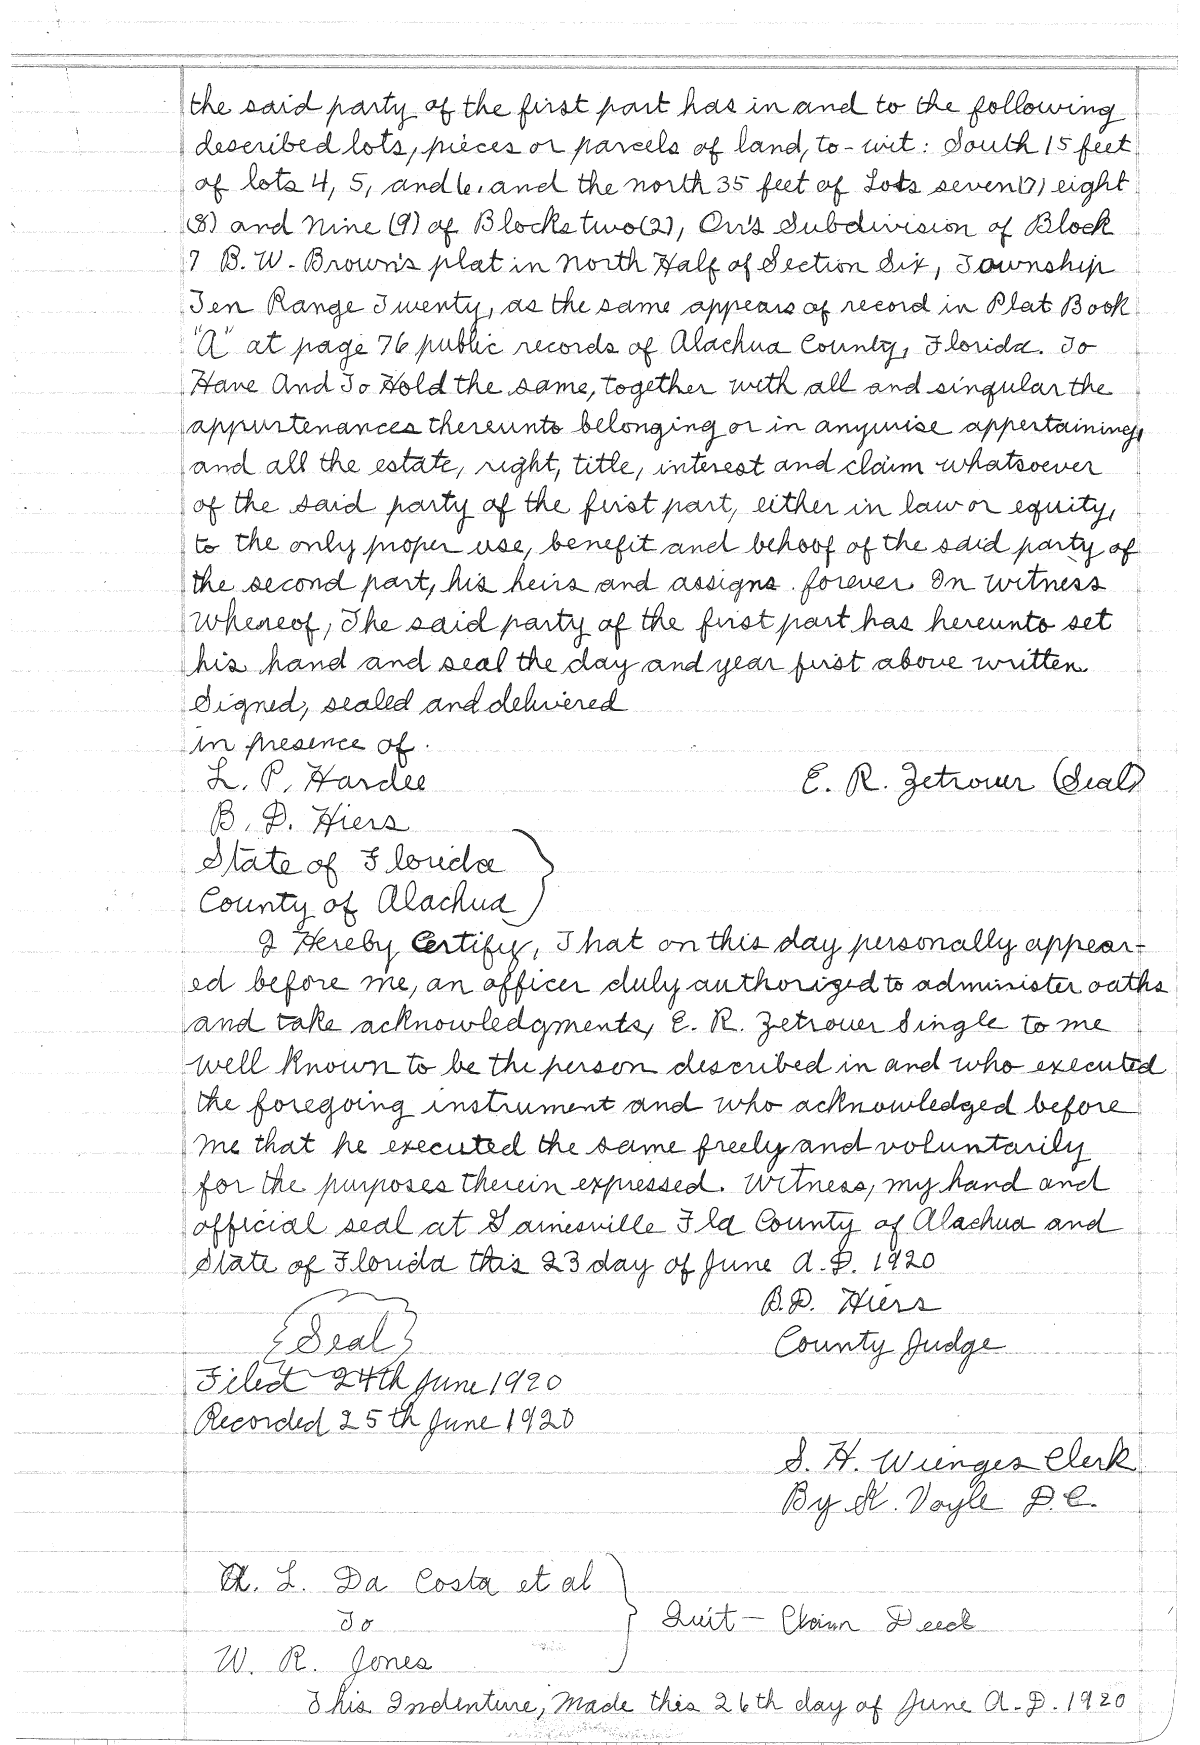 the said party of the first part has in and to the following
described lots, pieces or parcels of land, to-wit: South 15 feet
of lots 4, 5, and 6, and the north 35 feet of Lots seven (7) eight
(8) and Nine (9) of Blocks two (2), Orr's Subdivision of Block
7 B. W. Brown's plat in North Half of Section Six, Township
Ten Range Twenty, as the same appears of record in Plat Book
"A" at page 76 public records of Alachua County, Florida. To
Have And To Hold the same, together with all and singular the
appurtenances thereunto belonging or in anywise appertaining,
and all the estate, right, title, interest and claim whatsoever
of the said party of the first part, either in law or equity,
to the only proper use, benefit and behoof of the said party of
the second part, his heirs and assigns forever. In witness
whereof, The said party of the first part has hereunto set
his hand and seal the day and year first above written.
Signed, sealed and delivered
in presence of.
L. P. Hardee E. R. Zetrouer (Seal)
B. D. Hiers
State of Florida
County of Alachua
I Hereby Certify, That on this day personally appear-
ed before me, an officer duly authorized to administer oaths
and take acknowledgments, E. R. Zetrouer Single to me
well known to be the person described in and who executed
the foregoing instrument and who acknowledged before
me that he executed the same freely and voluntarily
for the purposes therein expressed. Witness, my hand and
official seal at Gainesville Fla County of Alachua and
State of Florida this 23 day of June A.D. 1920
B.D. Hiers
{Seal} County Judge
Filed 24th June 1920
Recorded 25th June 1920
S. H. Wienges Clerk
By K. Voyle D.C.
A. L. Da Costa et al
To Quit-Claim Deed
W. R. Jones
This Indenture, Made this 26th day of June A.D. 1920